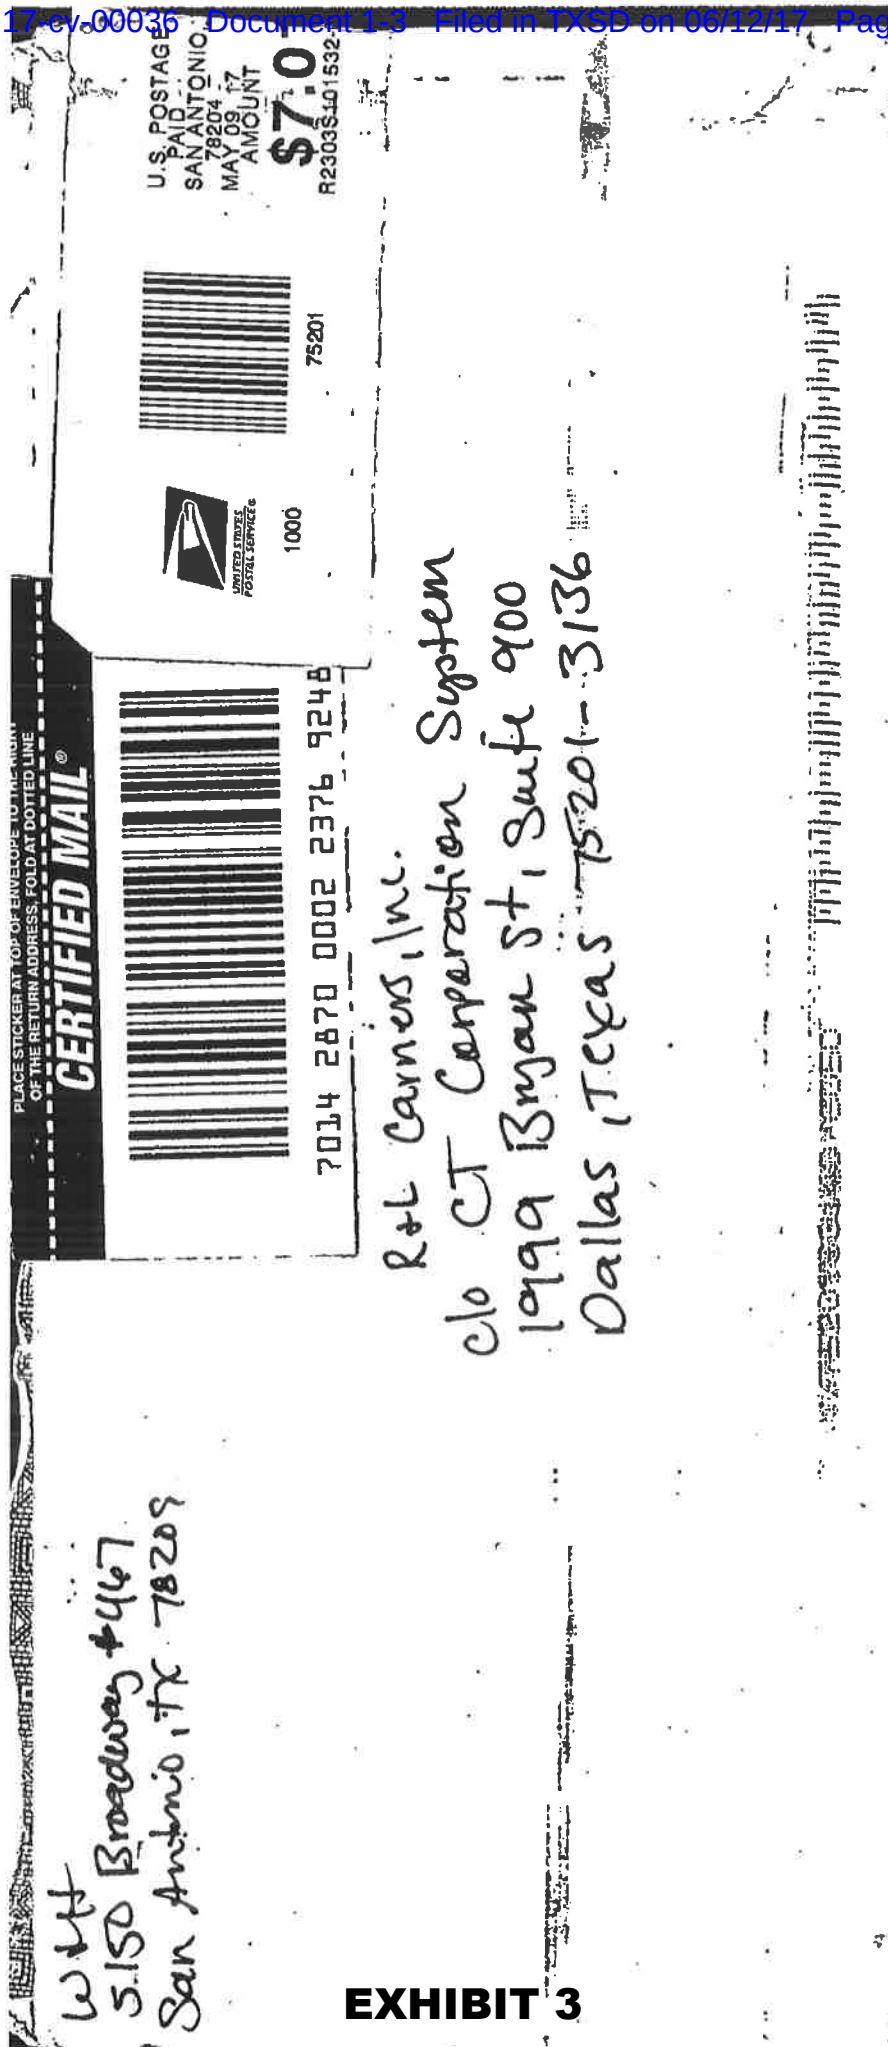 17-cv-00036 Document 1-3 Filed in TXSD on 06/12/17 Pag
U.S. POSTAGE
PAID
SAN ANTONIO,
78204
MAY 09, 17
AMOUNT
$7.0
R2303S101532-
75201
UNITED STATES
POSTAL SERVICE®
1000
PLACE STICKER AT TOP OF ENVELOPE TO THE RIGHT
OF THE RETURN ADDRESS, FOLD AT DOTTED LINE
CERTIFIED MAIL®
7014 2870 0002 2376 9248
R+L Carriers, Inc.
c/o CT Corporation System
1999 Bryan St, Suite 900
Dallas, Texas 75201-3136
5150 Broadway #467
San Antonio, TX 78209
EXHIBIT 3